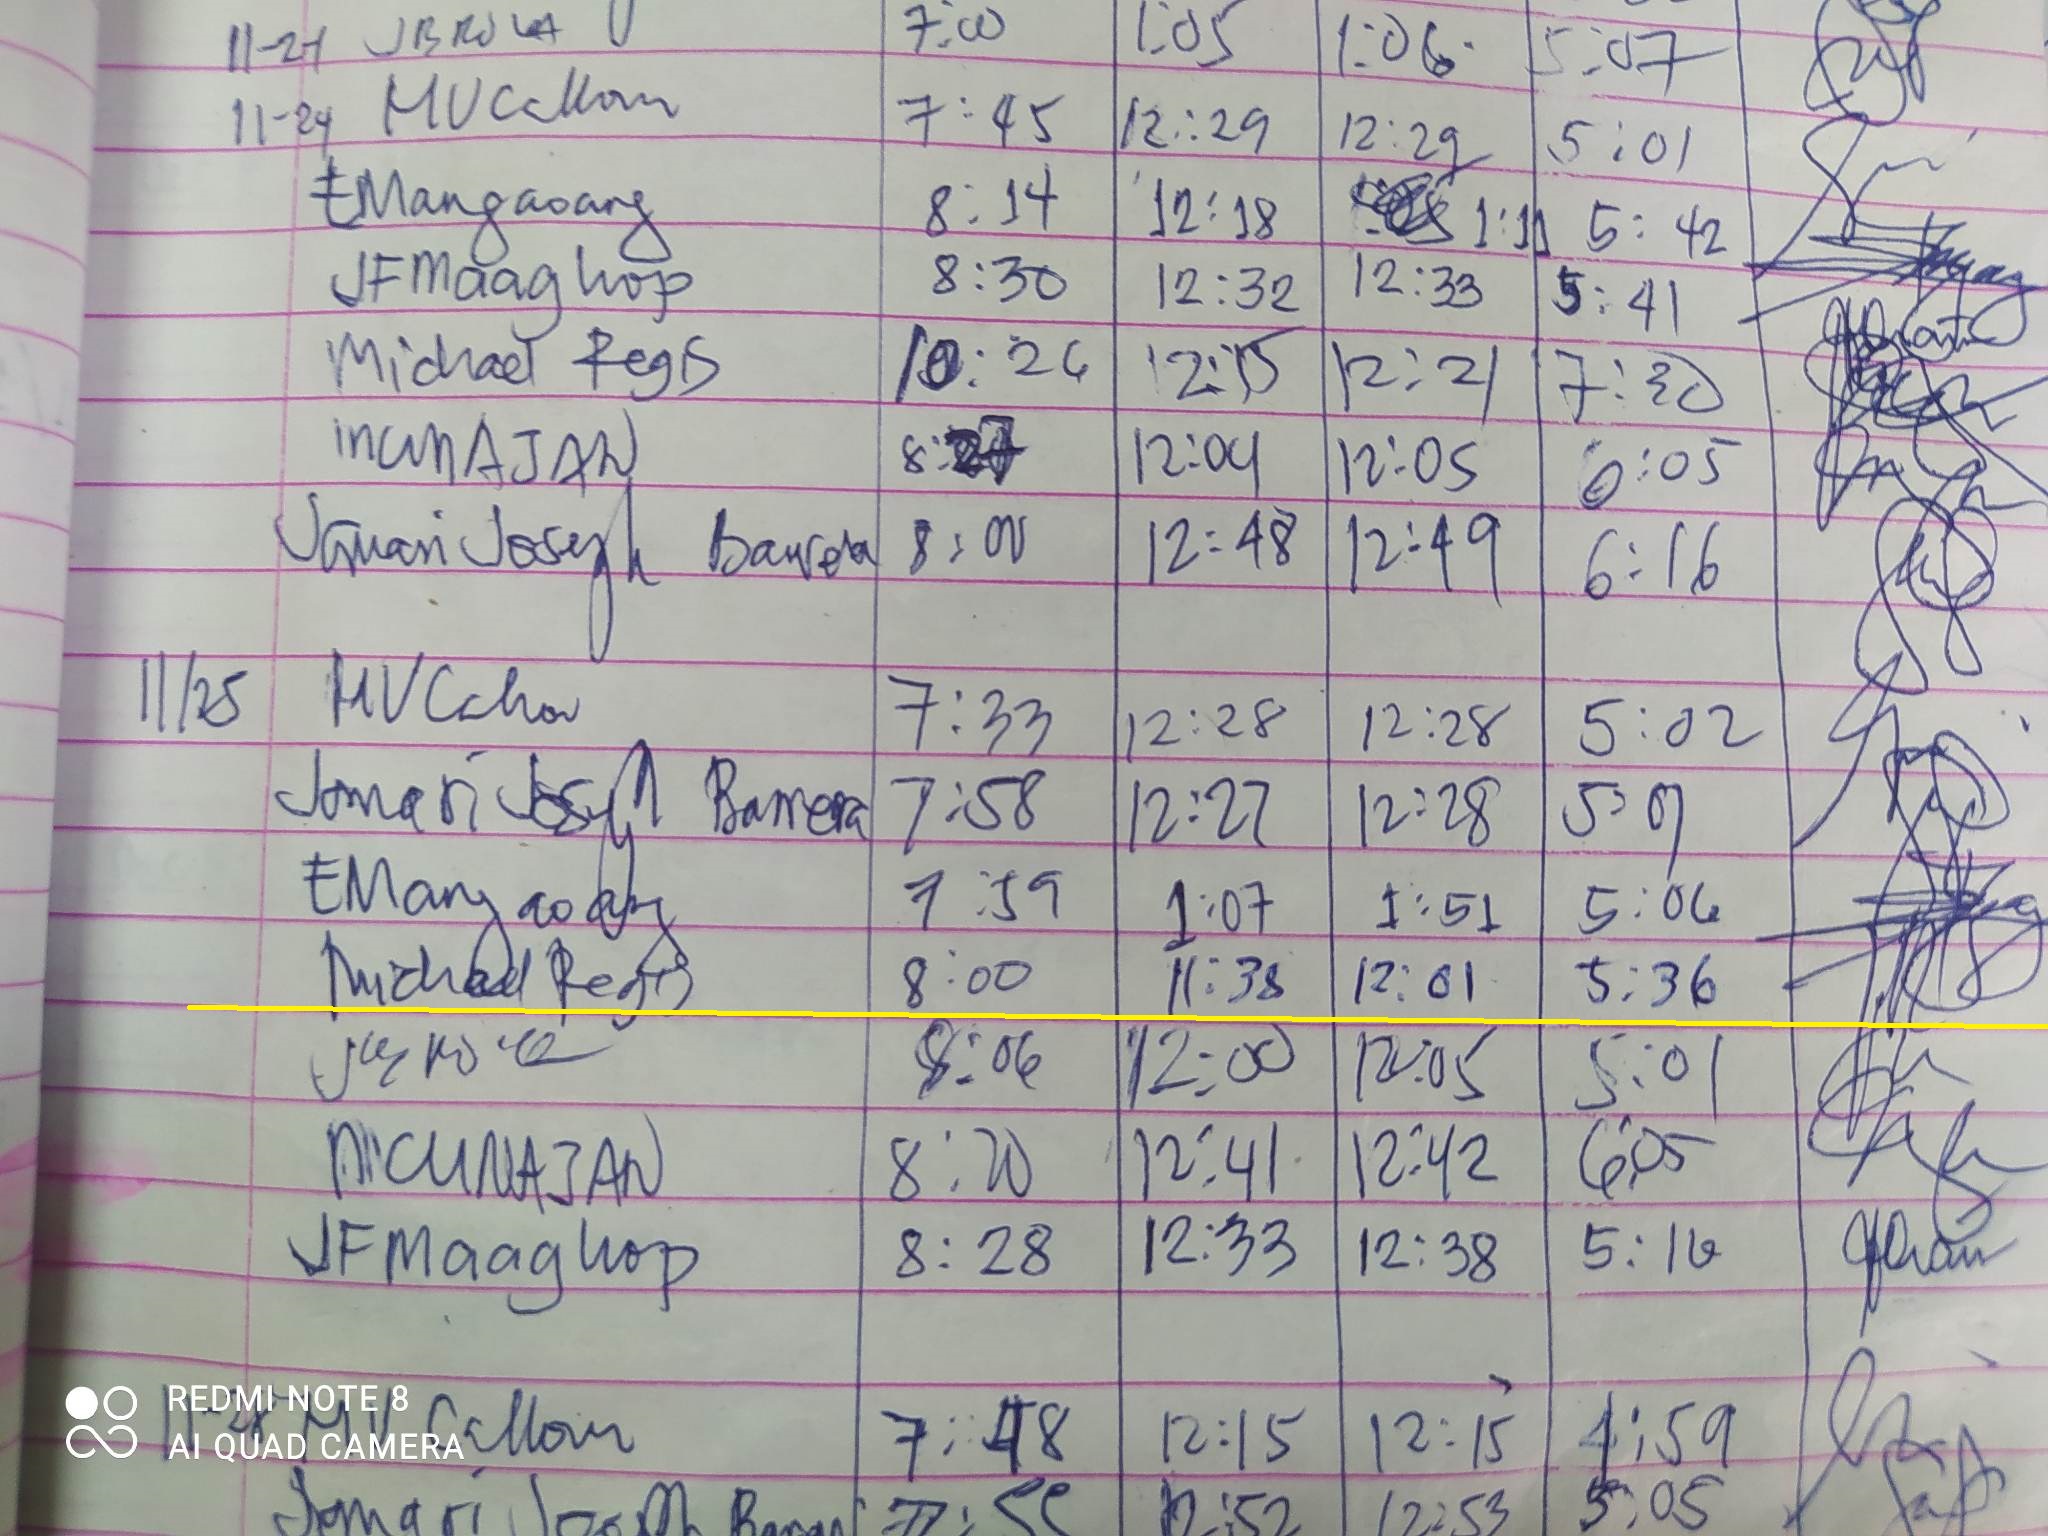 11-24 JBROLA 7:00 1:05 1:06 5:07
11-24 MVCallow 7:45 12:29 12:29 5:01
EMangaoang 8:14 12:18 1:11 5:42
JFMaaghop 8:30 12:32 12:33 5:41
Michael Regis 10:26 12:15 12:21 7:30
8:27 12:04 12:05 6:05
Jomari Joseph Barrera 8:00 12:48 12:49 6:16
11/25 7:33 12:28 12:28 5:02
Jomari Joseph Barrera 7:58 12:27 12:28 5:07
EMangaoang 7:59 1:07 1:51 5:06
Michael Regis 8:00 11:38 12:01 5:36
8:06 12:00 12:05 5:01
MICUNAJAN 8:20 12:41 12:42 6:05
JFMaaghop 8:28 12:33 12:38 5:16
11-28 MVCallow 7:48 12:15 12:15 4:59
Jomari Joseph 12:52 12:53 5:05
REDMI NOTE 8
AI QUAD CAMERA